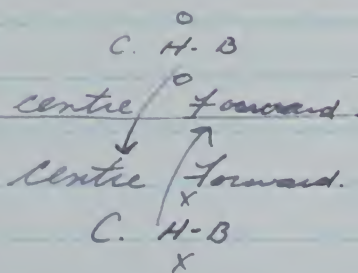 O
C. H-B
O
centre Forward.
centre Forward.
X
C. H-B
X